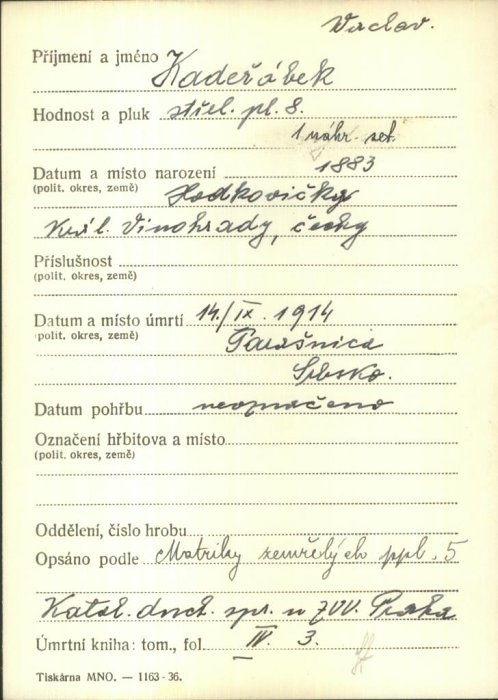 Vaclav.
Příjmení a jméno Kadeřábek
Hodnost a pluk střel. pl. 8.
1 náhr. set.
Datum a místo narození 1883
(polit. okres, země) Hodkovičky
Král. Vinohrady, česky
Příslušnost
(polit. okres, země)
Datum a místo úmrtí 14./IX. 1914
(polit. okres, země) Parašnica
Srbsko.
Datum pohřbu neoznačeno
Označení hřbitova a místo
(polit. okres, země)
Oddělení, číslo hrobu
Opsáno podle Matriky zemřelých ppl. 5
Katol. duch. spr. u ZVV. Praha
Úmrtní kniha: tom., fol. IV. 3.
Tiskárna MNO. — 1163-36.